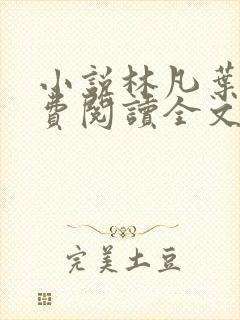 小說林凡葉
費閱讀全文
完美土豆